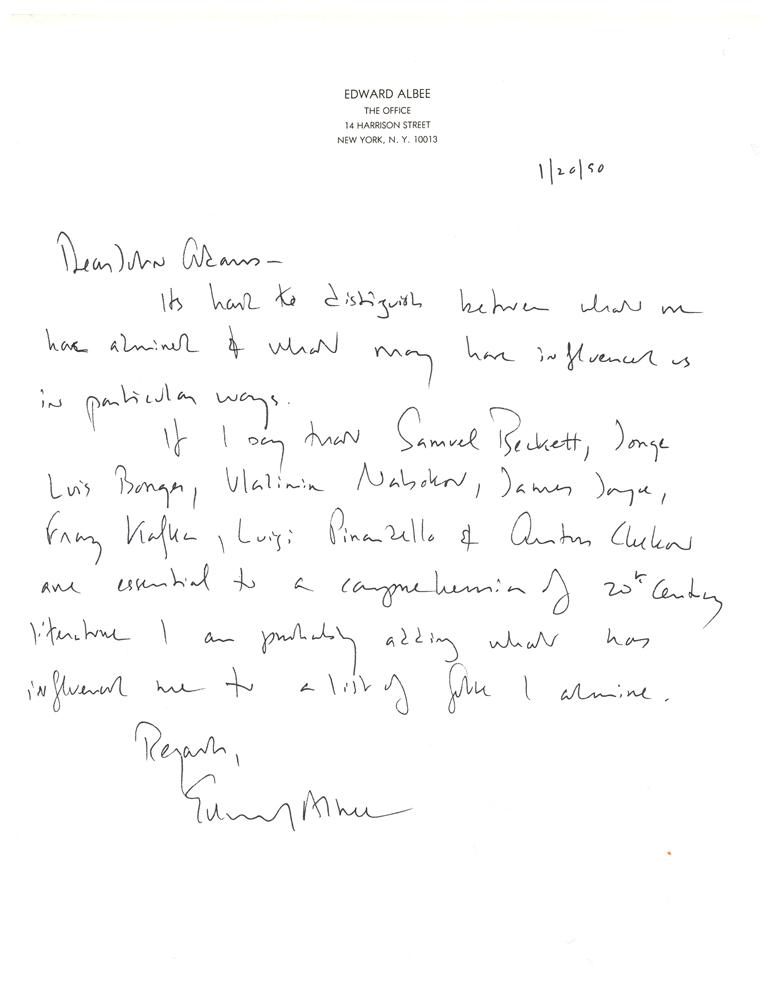 EDWARD ALBEE
THE OFFICE
14 HARRISON STREET
NEW YORK, N. Y. 10013
1/20/90
Dear John Adams –
Its hard to distiguish between what we
have admired & what may have influenced us
in particular ways.
If I say that Samuel Beckett, Jorge
Luis Borges, Vladimir Nabokov, James Joyce,
Franz Kafka, Luigi Pirandello & Anton Chekov
are essential to a comprehension of 20th Century
literature I am probably adding what has
influenced me to a list of folk I admire.
Regards,
Edward Albee